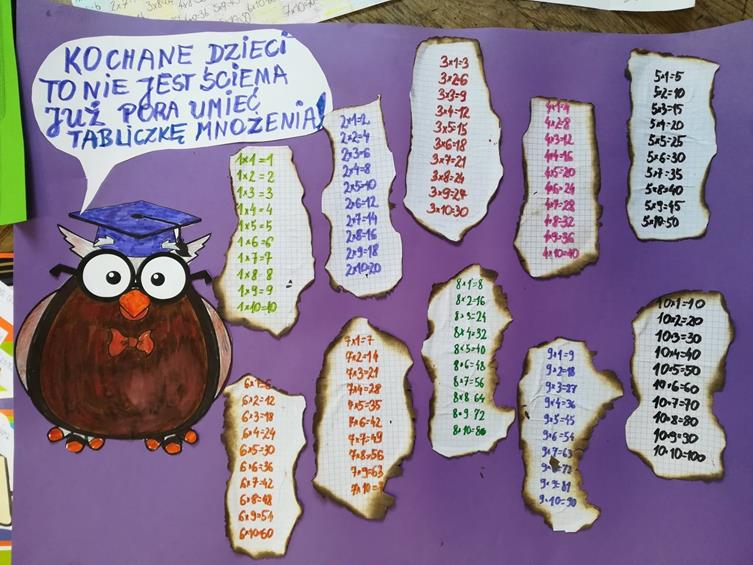 KOCHANE DZIECI
TO NIE JEST ŚCIEMA
JUŻ PORA UMIEĆ
TABLICZKĘ MNOŻENIA!
1×1=1
1×2=2
1×3=3
1×4=4
1×5=5
1×6=6
1×7=7
1×8=8
1×9=9
1×10=10
2×1=2
2×2=4
2×3=6
2×4=8
2×5=10
2×6=12
2×7=14
2×8=16
2×9=18
2×10=20
3×1=3
3×2=6
3×3=9
3×4=12
3×5=15
3×6=18
3×7=21
3×8=24
3×9=27
3×10=30
4×1=4
4×2=8
4×3=12
4×4=16
4×5=20
4×6=24
4×7=28
4×8=32
4×9=36
4×10=40
5×1=5
5×2=10
5×3=15
5×4=20
5×5=25
5×6=30
5×7=35
5×8=40
5×9=45
5×10=50
6×1=6
6×2=12
6×3=18
6×4=24
6×5=30
6×6=36
6×7=42
6×8=48
6×9=54
6×10=60
7×1=7
7×2=14
7×3=21
7×4=28
7×5=35
7×6=42
7×7=49
7×8=56
7×9=63
7×10=
8×1=8
8×2=16
8×3=24
8×4=32
8×5=40
8×6=48
8×7=56
8×8=64
8×9=72
8×10=80
9×1=9
9×2=18
9×3=27
9×4=36
9×5=45
9×6=54
9×7=63
9× =72
9×9=81
9×10=90
10×1=10
10×2=20
10×3=30
10×4=40
10×5=50
10×6=60
10×7=70
10×8=80
10×9=90
10×10=100